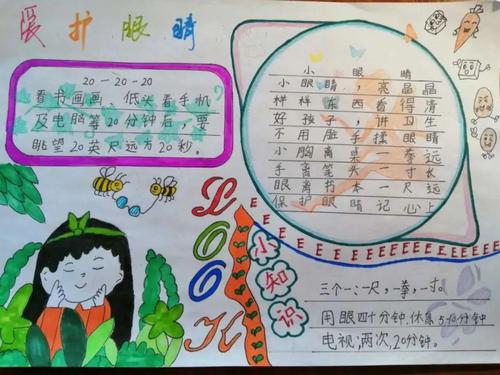 爱护眼睛
20-20-20
看书画画、低头看手机
及电脑等20分钟后,要
眺望20英尺远方20秒。
小眼睛
小眼睛,亮晶晶
样样东西看得清
好孩子,讲卫生
不用脏手揉眼睛
小胸离桌一拳远
手离笔头一寸长
眼离书本一尺远
保护眼睛记心上
LOOK
E E E E E E E E E E E E E
小知识
三个一:一尺,一拳,一寸。
用眼四十分钟,休息5-10分钟
电视;两次,20分钟。